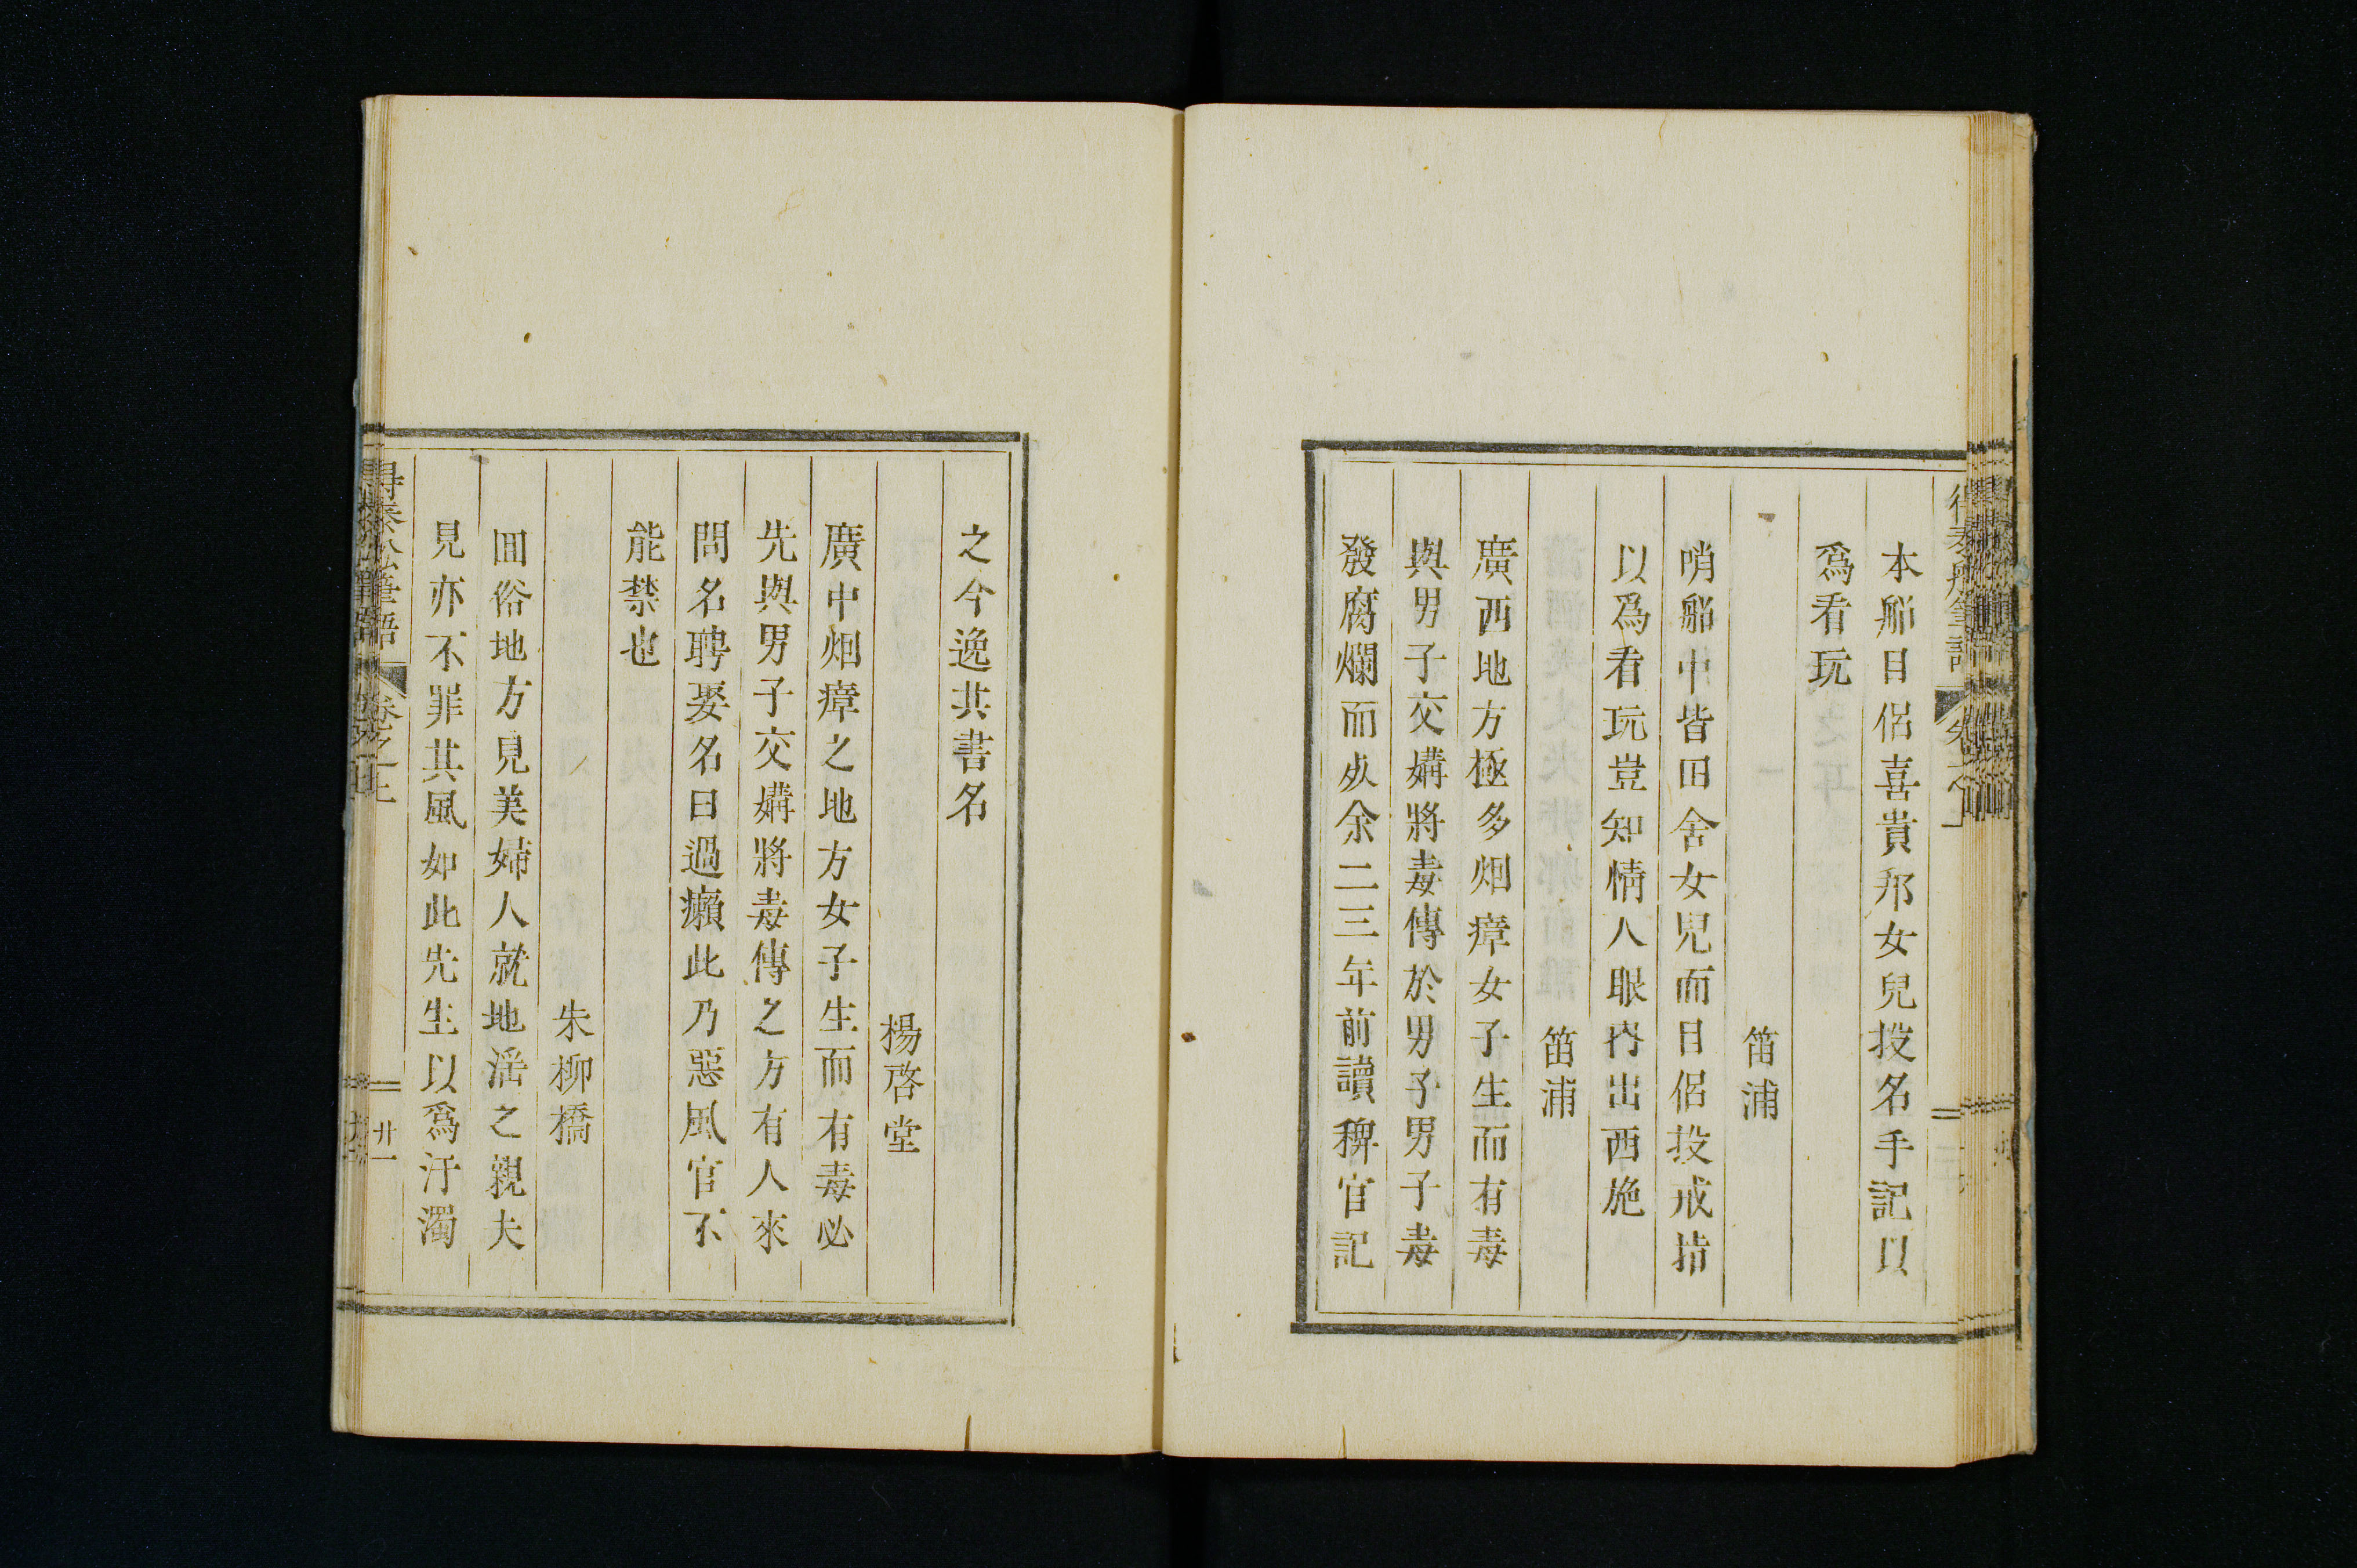 本船目侶喜貴邦女兒投名手記以
爲看玩
笛浦
哨船中皆田舍女兒而目侶投戒指
以爲看玩豈知情人眼內出西施
笛浦
廣西地方極多烟瘴女子生而有毒
與男子交媾將毒傳於男子男子毒
發腐爛而死余二三年前讀稗官記
之今逸其書名
楊啓堂
廣中烟瘴之地方女子生而有毒必
先與男子交媾將毒傳之方有人來
問名聘娶名曰過癩此乃惡風官不
能禁也
朱柳橋
回俗地方見美婦人就地淫之親夫
見亦不罪其風如此先生以爲汙濁
得泰船筆語
卷之上
廿一